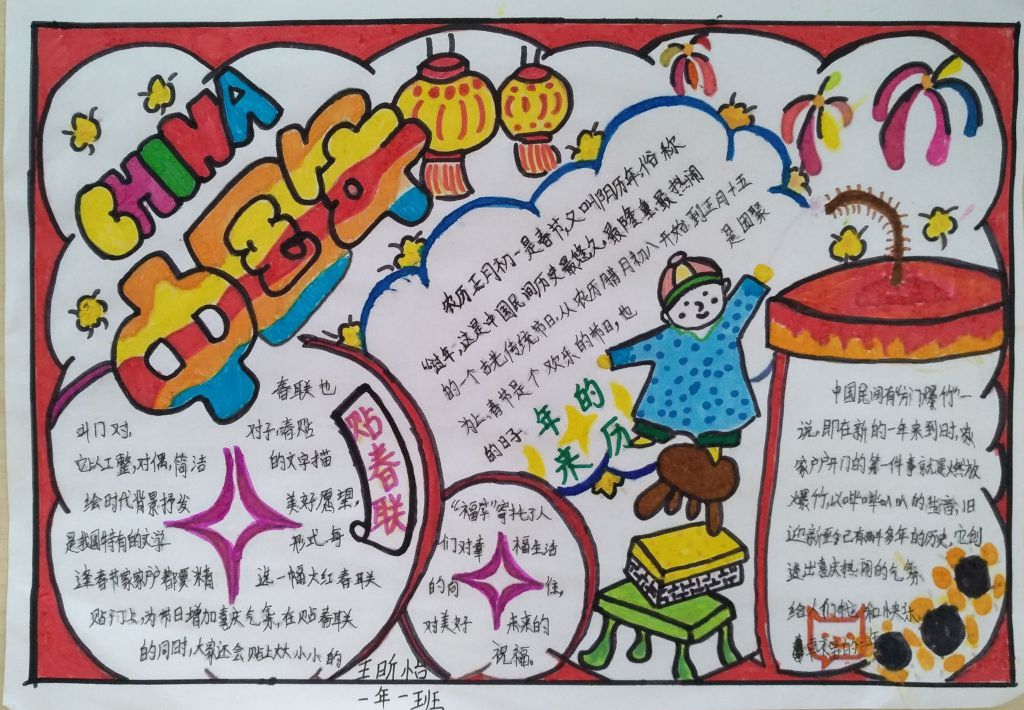 CHINA
中国年
农历正月初一是春节,又叫阴历年,俗称
"过年",这是中国民间历史最悠久、最隆重、最热闹
的一个古老传统节日,从农历腊月初八开始到正月十五
为止,春节是个欢乐的节日,也是团聚
的日子
年的
来历
贴春联
春联也
叫门对, 对子,春贴
它以工整,对偶,简洁 的文字描
绘时代背景抒发 美好愿望,
是我国特有的文学 形式。每
逢春节家家户户都要精 选一幅大红春联
贴门上,为节日增加喜庆气氛,在贴春联
的同时,大家还会贴上大大小小的
"福字"寄托了人
们对幸 福生活
的向 往,
对美好 未来的
祝福。
中国民间有"开门爆竹"一
说,即在新的一年来到时,家
家户户开门的第一件事就是燃放
爆竹,以哔哔叭叭的声音,旧
迎新至今已有两千多年的历史,它创
造出喜庆热闹的气氛,
给人们 和快乐
王昕怡
一年一班